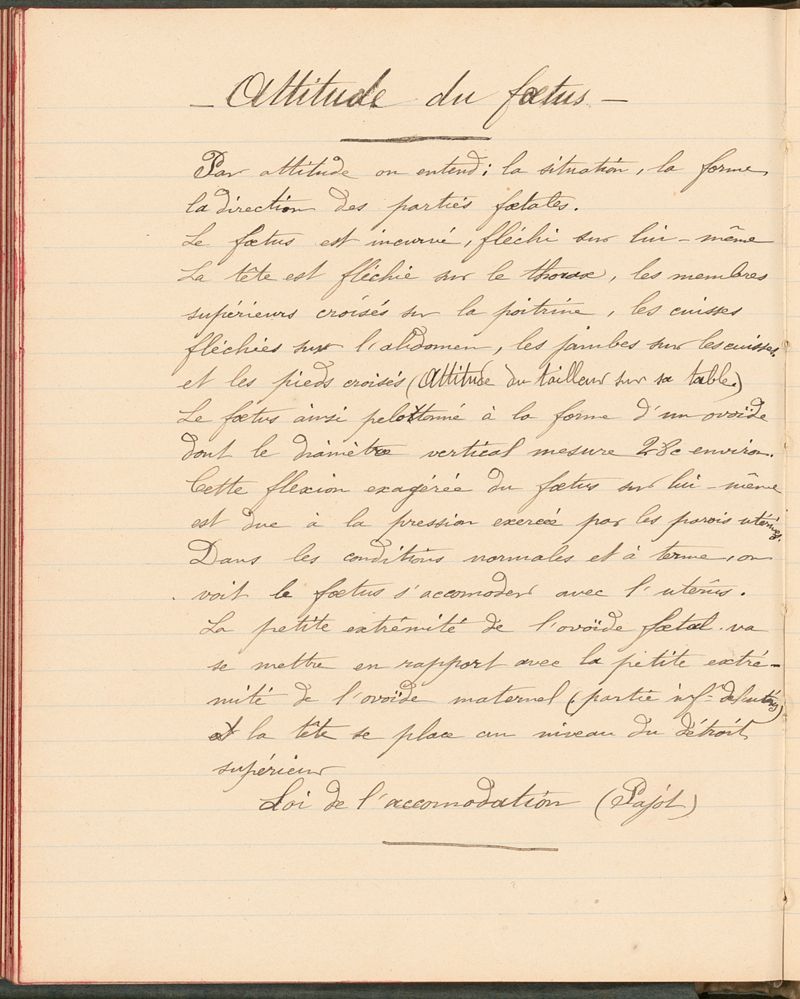 — Attitude du fœtus —
Par attitude on entend ; la situation, la forme,
la direction des parties fœtales.
Le fœtus est incurvé, fléchi sur lui-même
La tête est fléchie sur le thorax, les membres
supérieurs croisés sur la poitrine, les cuisses
fléchies sur l'abdomen, les jambes sur les cuisses,
et les pieds croisés (Attitude du tailleur sur sa table)
Le fœtus ainsi pelottonné à la forme d'un ovoïde
dont le diamètre vertical mesure 28c environ.
Cette flexion exagérée du fœtus sur lui-même
est due à la pression exercée par les parois utérines.
Dans les conditions normales et à terme, on
voit le fœtus s'accomoder avec l'utérus.
La petite extrémité de l'ovoïde fœtal va
se mettre en rapport avec la petite extré-
mité de l'ovoïde maternel (partie inf. de l'utérus)
et la tête se place au niveau du détroit
supérieur
Loi de l'accomodation (Pajot)